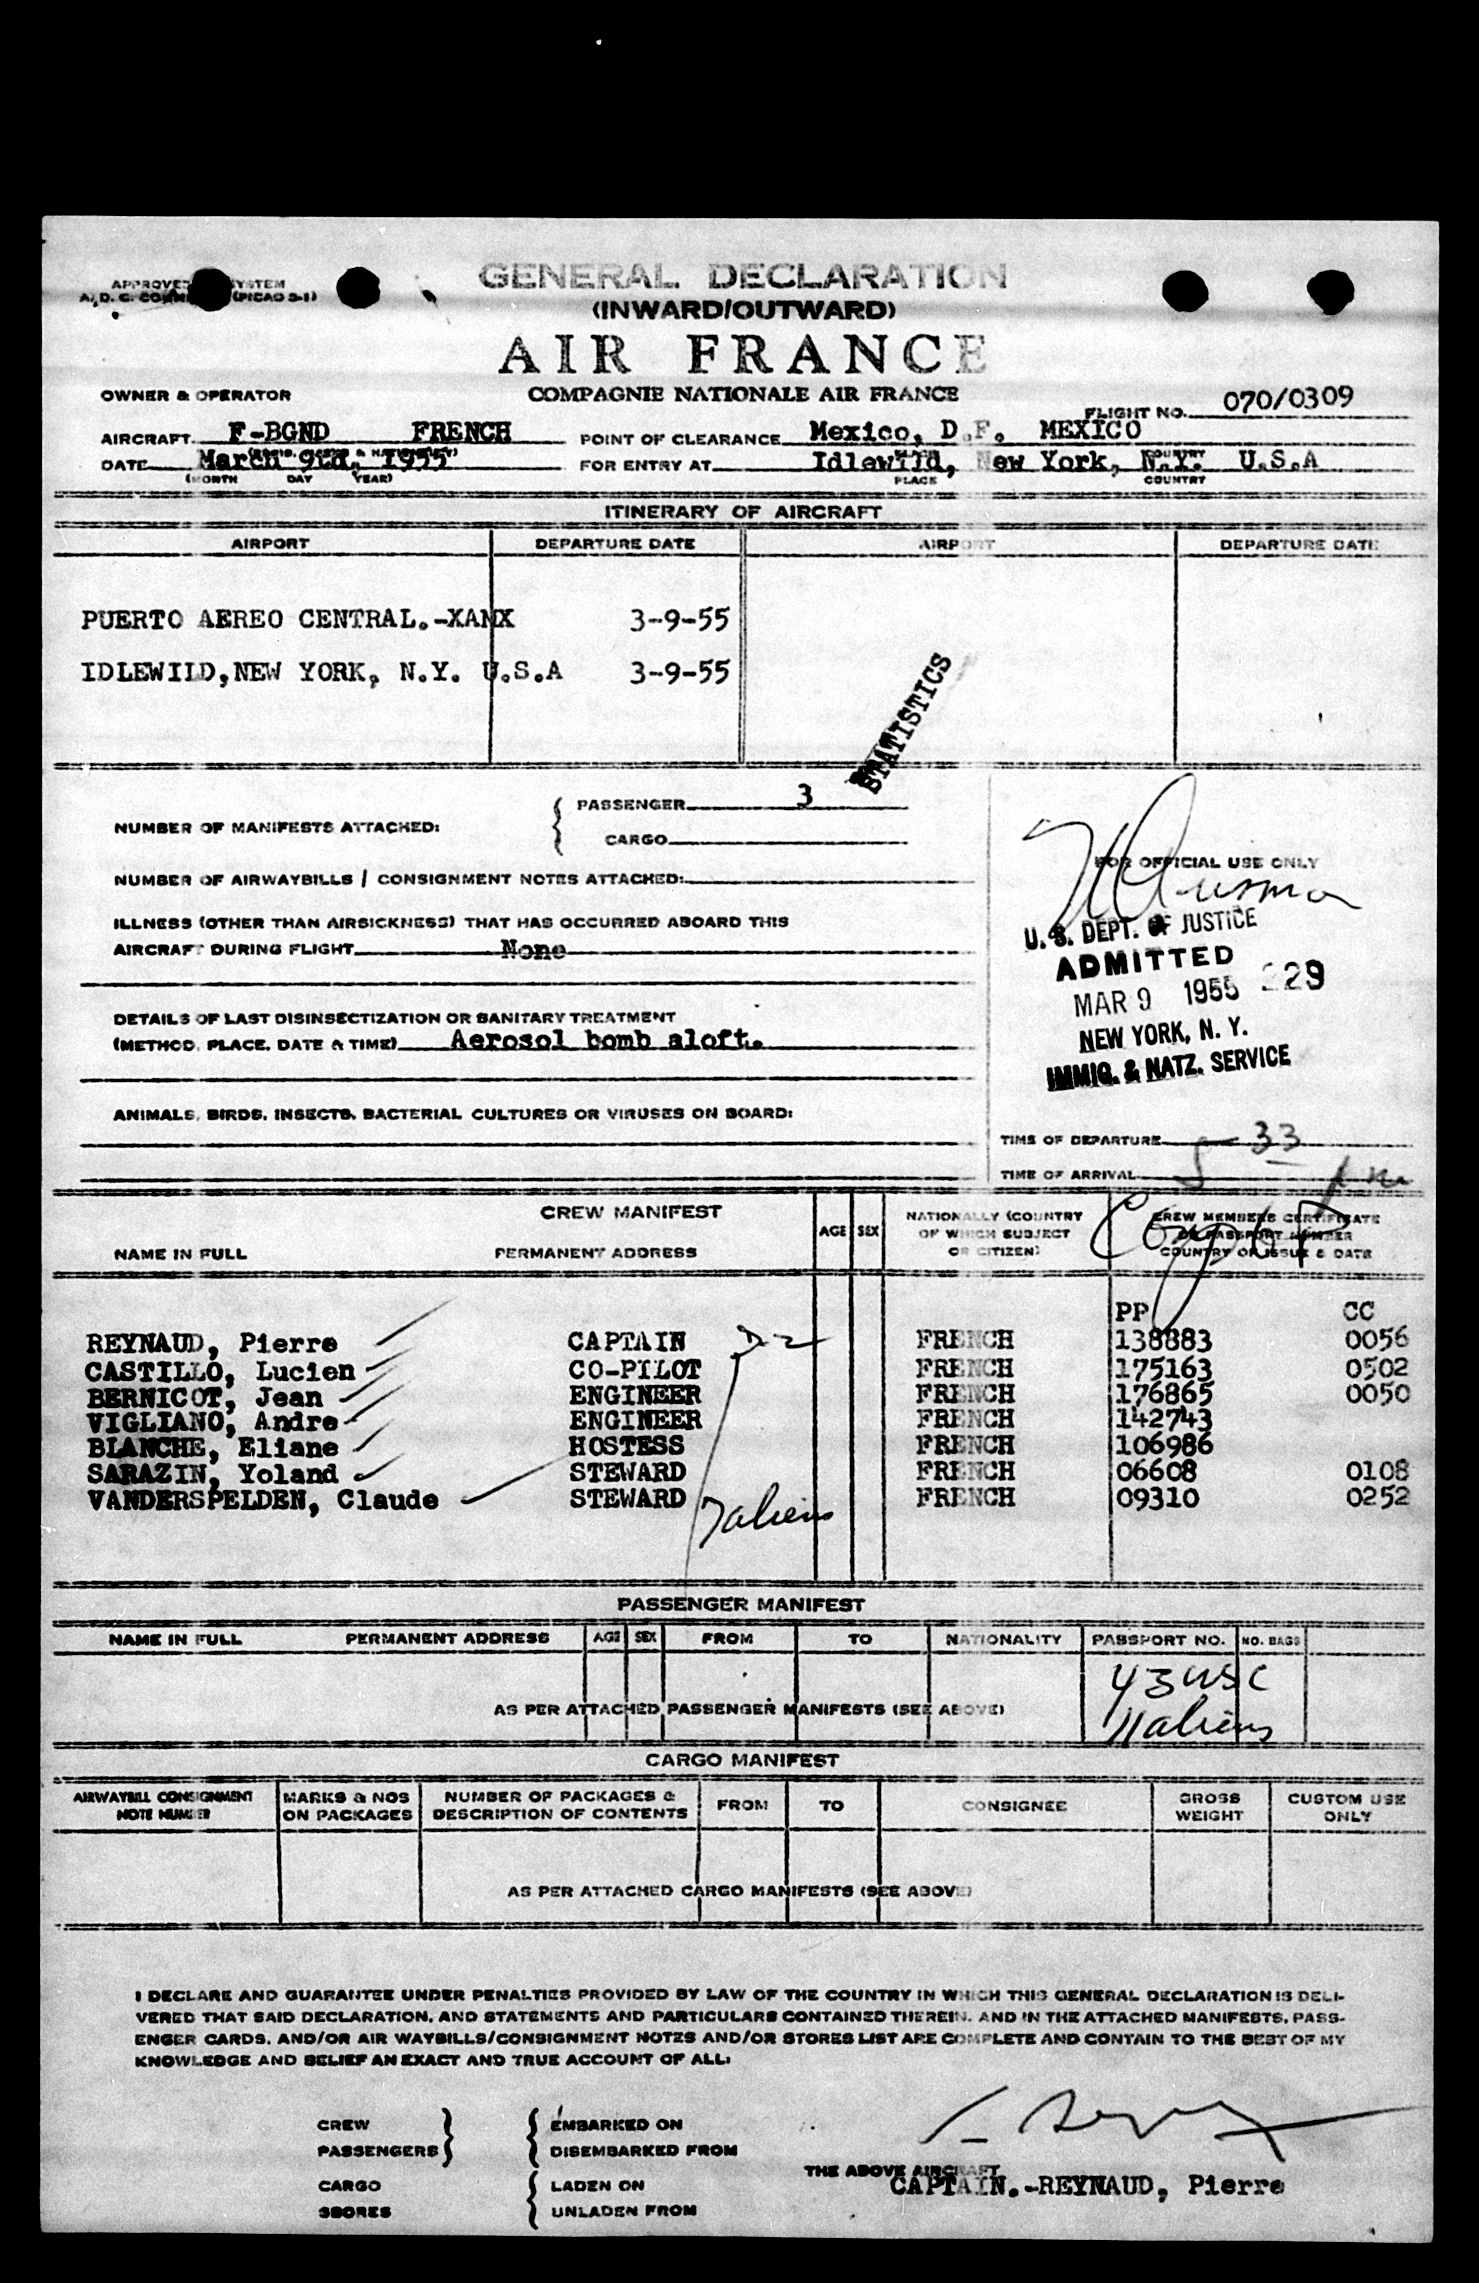 GENERAL DECLARATION
(INWARD/OUTWARD)
AIR FRANCE
OWNER & OPERATOR COMPAGNIE NATIONALE AIR FRANCE
FLIGHT NO. 070/0309
AIRCRAFT F-BGND FRENCH POINT OF CLEARANCE Mexico, D.F. MEXICO
DATE March 9th, 1955 FOR ENTRY AT Idlewild, New York, N.Y. U.S.A
(MONTH DAY YEAR) PLACE COUNTRY
ITINERARY OF AIRCRAFT
AIRPORT DEPARTURE DATE AIRPORT DEPARTURE DATE
PUERTO AEREO CENTRAL.-XAMX 3-9-55
IDLEWILD, NEW YORK, N.Y. U.S.A 3-9-55
STATISTICS
NUMBER OF MANIFESTS ATTACHED: PASSENGER 3
CARGO
NUMBER OF AIRWAYBILLS / CONSIGNMENT NOTES ATTACHED:
ILLNESS (OTHER THAN AIRSICKNESS) THAT HAS OCCURRED ABOARD THIS
AIRCRAFT DURING FLIGHT None
DETAILS OF LAST DISINSECTIZATION OR SANITARY TREATMENT
(METHOD, PLACE, DATE & TIME) Aerosol bomb aloft.
ANIMALS, BIRDS, INSECTS, BACTERIAL CULTURES OR VIRUSES ON BOARD:
FOR OFFICIAL USE ONLY
U. S. DEPT. OF JUSTICE
ADMITTED
MAR 9 1955 229
NEW YORK, N. Y.
IMMIG. & NATZ. SERVICE
TIME OF DEPARTURE
TIME OF ARRIVAL 5 33 pm
CREW MANIFEST
NAME IN FULL PERMANENT ADDRESS AGE SEX NATIONALLY (COUNTRY OF WHICH SUBJECT OR CITIZEN) CREW MEMBERS CERTIFICATE OR PASSPORT NUMBER COUNTRY OF ISSUE & DATE
PP CC
REYNAUD, Pierre CAPTAIN D-2 FRENCH 138883 0056
CASTILLO, Lucien CO-PILOT FRENCH 175163 0502
BERNICOT, Jean ENGINEER FRENCH 176865 0050
VIGLIANO, Andre ENGINEER FRENCH 142743
BLANCHE, Eliane HOSTESS FRENCH 106986
SARAZIN, Yoland STEWARD FRENCH 06608 0108
VANDERSPELDEN, Claude STEWARD FRENCH 09310 0252
7 aliens
PASSENGER MANIFEST
NAME IN FULL PERMANENT ADDRESS AGE SEX FROM TO NATIONALITY PASSPORT NO. NO. BAGS
43 USC
AS PER ATTACHED PASSENGER MANIFESTS (SEE ABOVE)
11 aliens
CARGO MANIFEST
AIRWAYBILL CONSIGNMENT NOTE NUMBER MARKS & NOS ON PACKAGES NUMBER OF PACKAGES & DESCRIPTION OF CONTENTS FROM TO CONSIGNEE GROSS WEIGHT CUSTOM USE ONLY
AS PER ATTACHED CARGO MANIFESTS (SEE ABOVE)
I DECLARE AND GUARANTEE UNDER PENALTIES PROVIDED BY LAW OF THE COUNTRY IN WHICH THIS GENERAL DECLARATION IS DELI-
VERED THAT SAID DECLARATION, AND STATEMENTS AND PARTICULARS CONTAINED THEREIN, AND IN THE ATTACHED MANIFESTS, PASS-
ENGER CARDS, AND/OR AIR WAYBILLS/CONSIGNMENT NOTES AND/OR STORES LIST ARE COMPLETE AND CONTAIN TO THE BEST OF MY
KNOWLEDGE AND BELIEF AN EXACT AND TRUE ACCOUNT OF ALL:
CREW EMBARKED ON
PASSENGERS DISEMBARKED FROM
THE ABOVE AIRCRAFT
CARGO LADEN ON CAPTAIN.-REYNAUD, Pierre
SBORES UNLADEN FROM